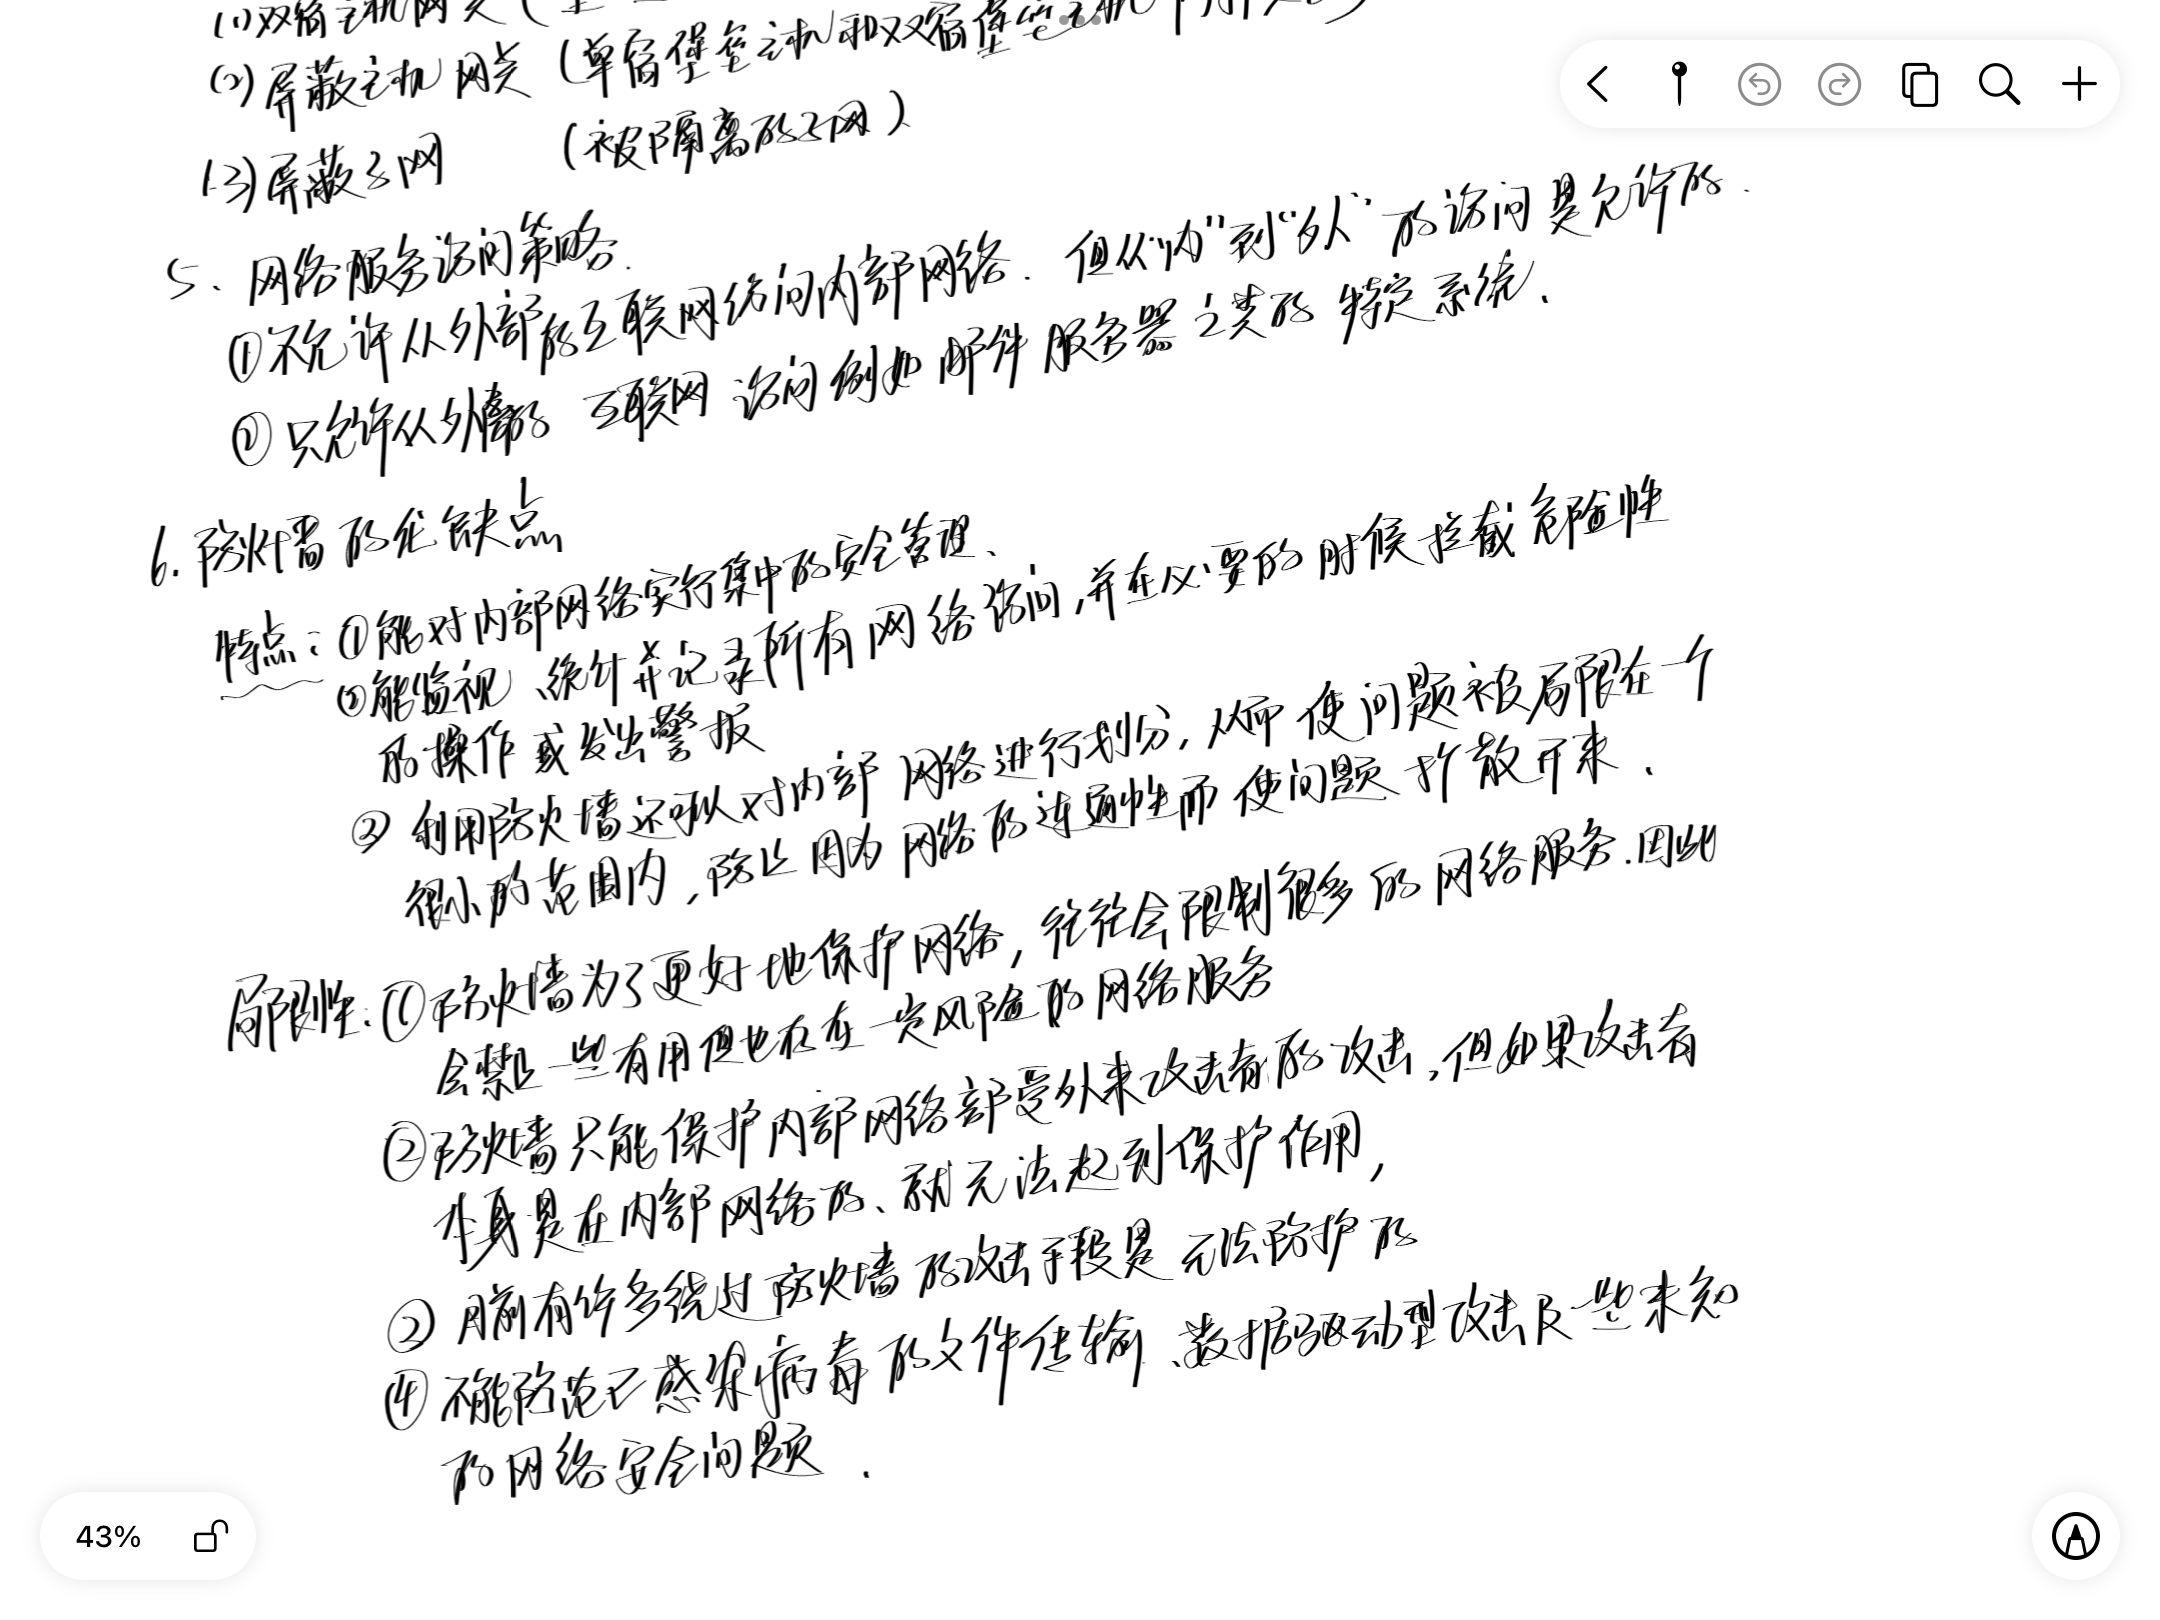 (1)双宿主机网关(
(2)屏蔽主机网关(单宿堡垒主机和双宿堡垒主机
(3)屏蔽子网 (被隔离的子网)
5、网络服务访问策略.
①不允许从外部的互联网络访问内部网络.但从"内"到"外"的访问是允许的.
②只允许从外部的互联网访问例如邮件服务器之类的特定系统、
6.防火墙的优缺点
特点:①能对内部网络实行集中的安全管理、
②能监视、统计并记录所有网络访问,并在必要的时候拦截危险性
的操作或发出警报
③利用防火墙还可以对内部网络进行划分,从而使问题被局限在一个
很小的范围内,防止因为网络的连通性而使问题扩散开来.
局限性:①防火墙为了更好地保护网络,往往会限制很多的网络服务.因此
会禁止一些有用但也存在一定风险的网络服务
②防火墙只能保护内部网络部受外来攻击者的攻击,但如果攻击者
本身是在内部网络的、就无法起到保护作用,
③目前有许多绕过防火墙的攻击手段是无法防护的
④不能防范已感染病毒的文件传输、数据驱动型攻击及一些未知
的网络安全问题.
43%